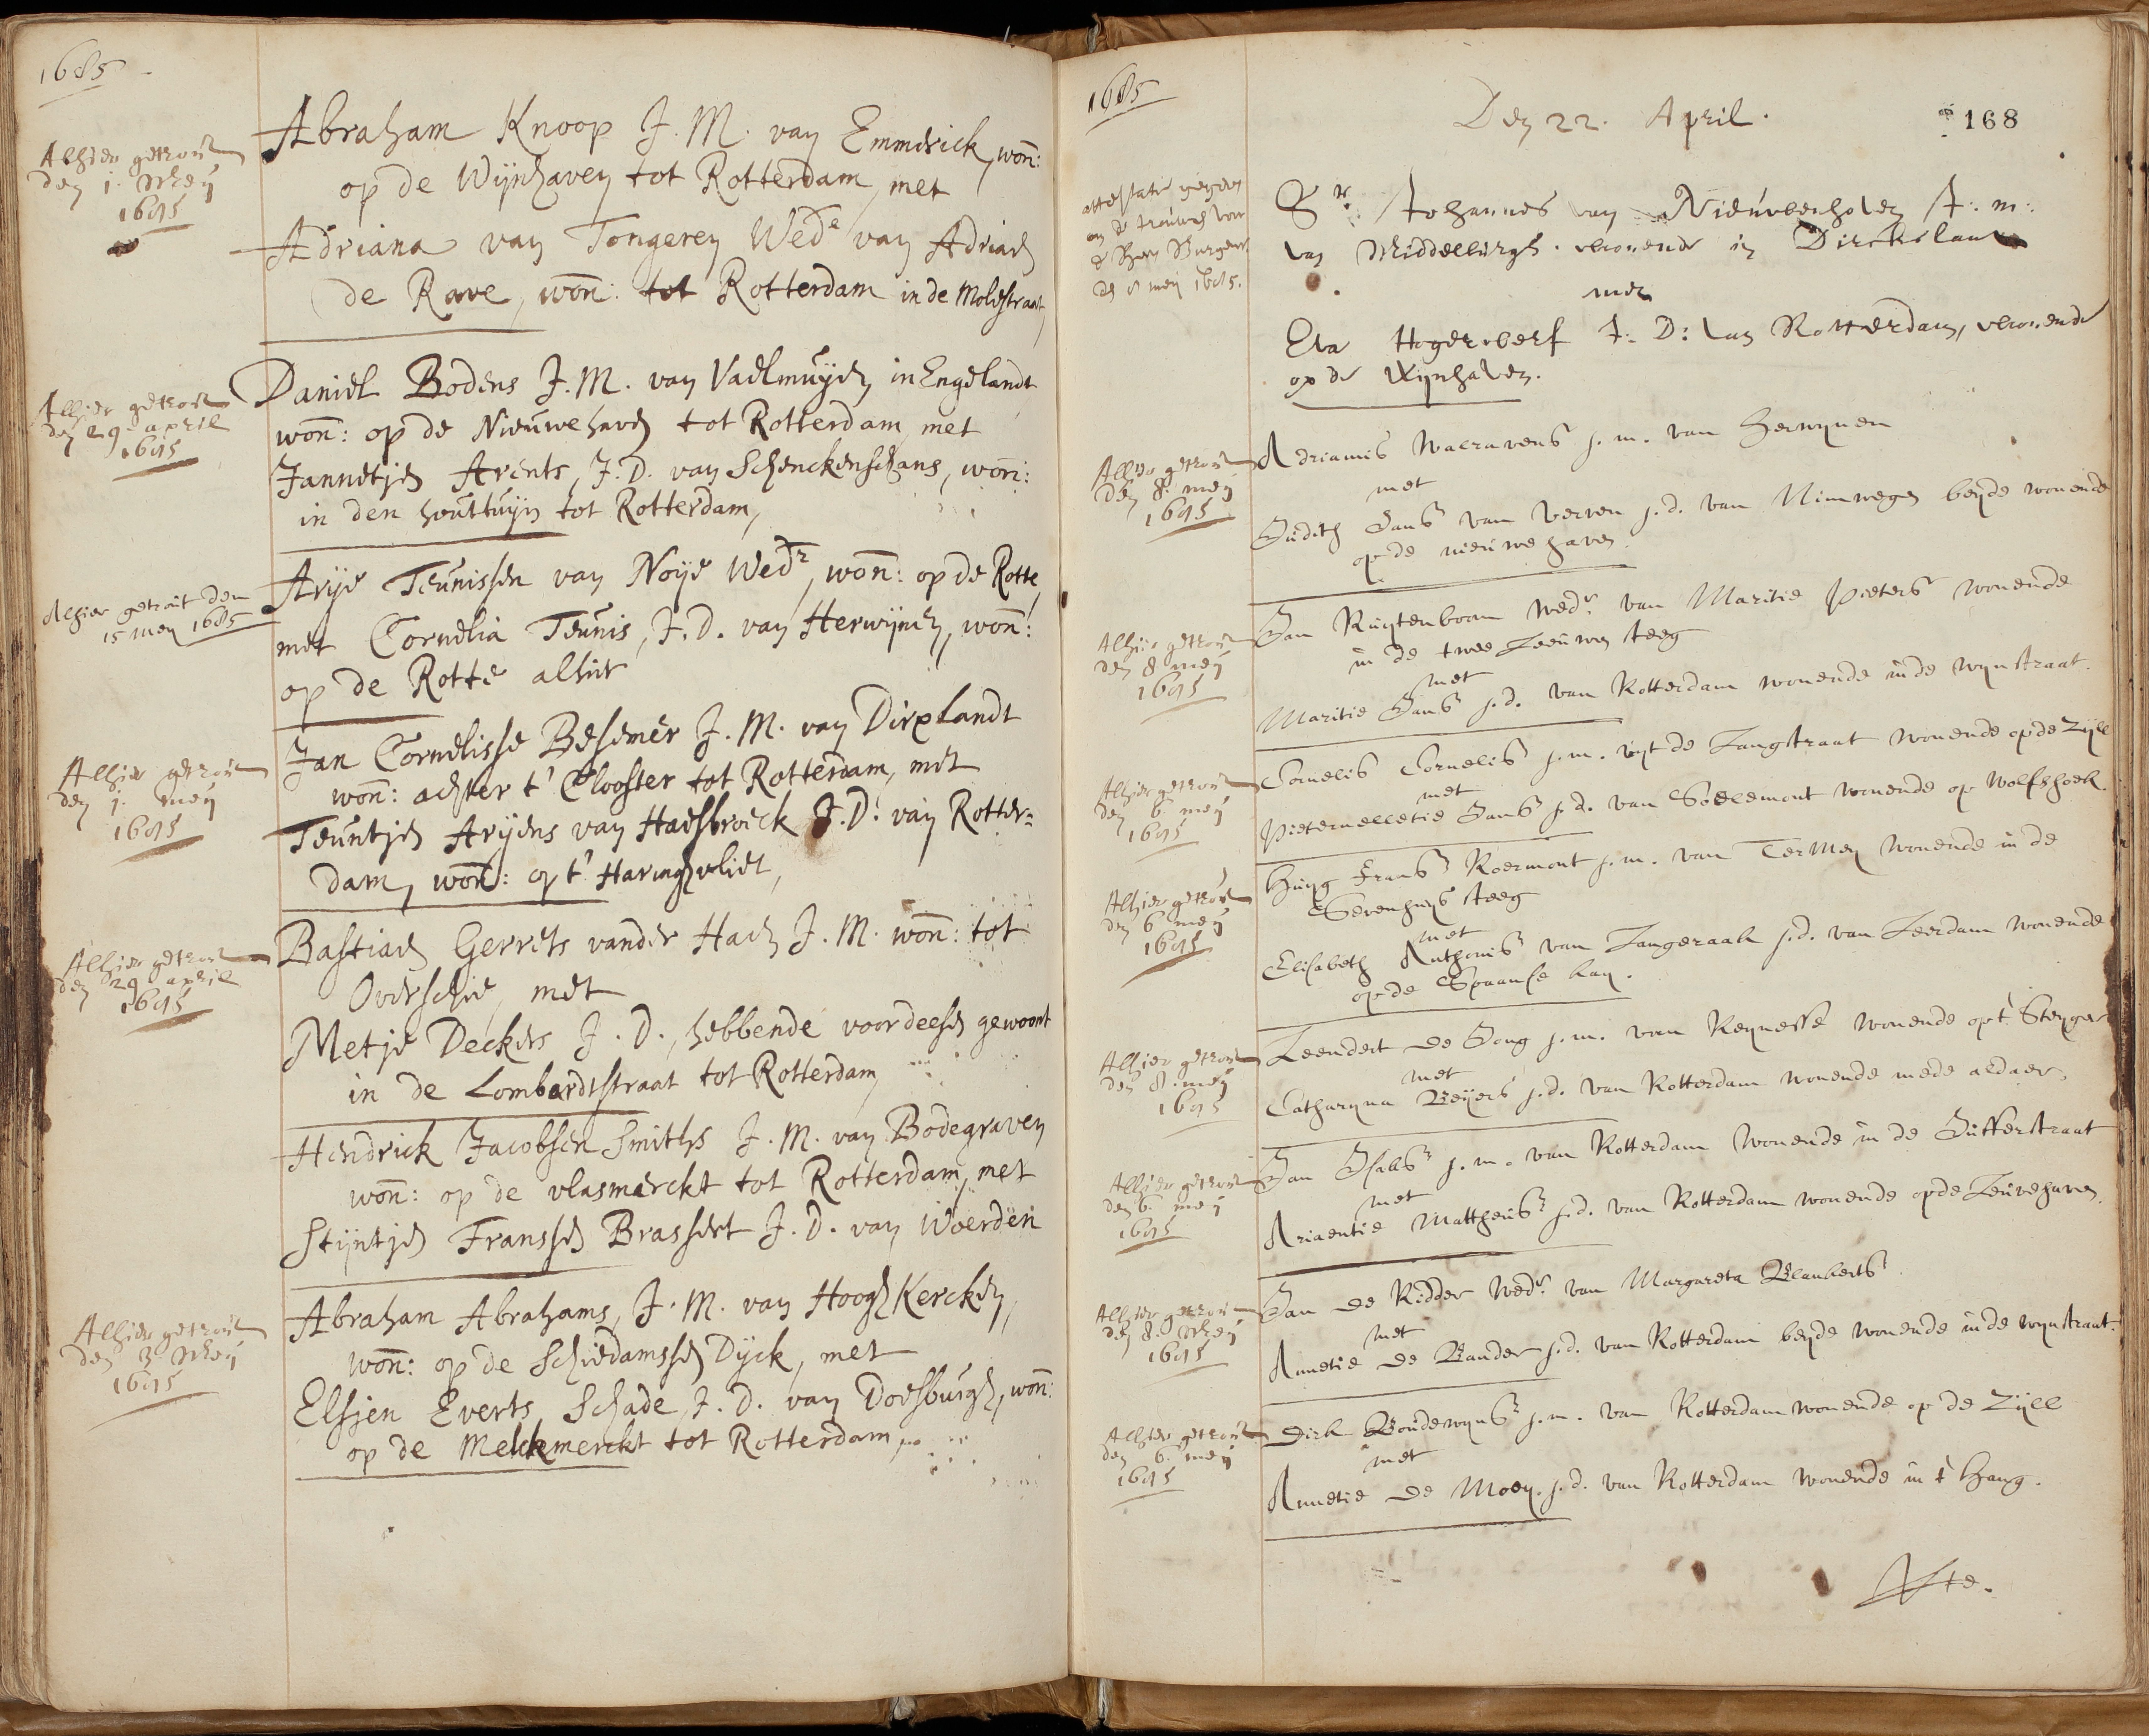 1685
Alhier getrout
den 1. Meij
1685
Abraham Knoop J. M. van Emmerick, won:
op de Wijnhaven tot Rotterdam, met
Adriana van Tongeren Wede van Adriaen
de Rave, won: tot Rotterdam in de Molestraat,
Alhier getrout
den 29 april
1685
Daniel Bodens J. M. van Valmuijden in Engelandt
won: op de Nieuwehaven tot Rotterdam, met
Jannetjen Arents, J. D. van Schenckenschans, won:
in den houttuijn tot Rotterdam,
Alhier getrout den
15 mey 1685
Arije Teunissen van Noije Wedr, won: op de Rotte,
met Cornelia Teunis, J. D. van Herwijnen, won:
op de Rotte alhier
Alhier getrout
den 1. meij
1685
Jan Cornelisse Besemer J. M. van Dirxlandt
won: achter t' Clooster tot Rotterdam, met
Teuntjen Arijens van Haesbroeck J. D. van Rotter=
dam, won: op t' Haringvliet,
Alhier getrout
den 29 april
1685
Bastiaen Gerrets vander Haeh J. M. won: tot
Overschie, met
Metje Deckers J. D., hebbende voor deesen gewoont
in de Lombardtstraat tot Rotterdam,
Hendrick Jacobsen Smiths J. M. van Bodegraven
won: op de vlasmerckt tot Rotterdam, met
Stijntjen Franssen Brassert J. D. van Woerden
Alhier getrout
den 3 Meij
1685
Abraham Abrahams, J. M. van Hoogh Kercken,
won: op de Schiedamssen Dijck, met
Elsjen Everts Schade, J. D. van Doesburgh, won:
op de Melckmerckt tot Rotterdam,
1685
Den 22. April.
168
attestatie gegeven
om te trouwen voor
den 8 meij 1685.
Sr. Johannes van Nieuwenhoven J: m:
van Middelburgh. wonende in Dirckslant
met
Eva Hogerwerf J: D: van Rotterdam, wonende
op de Wijnhaven.
Alhier getrout
den 8. meij
1685
Adrianus Walravens j. m. van Herwynen
met
Judith Jans van Verven j. d. van Nimwegen beyde wonende
op de nieuwe haven.
Alhier getrout
den 8 meij
1685
Jan Ruytenboom wedr. van Maritie Pieters wonende
in de twee Leeuwen steeg
met
Maritie Jans j. d. van Rotterdam wonende in de wynstraat.
Alhier getrout
den 6. meij
1685
Cornelis Cornelis j. m. uyt de Langstraat wonende op de Zyll
met
Pieternelletie Jans j. d. van Soelemont wonende op Wolfshoek.
Alhier getrout
den 6 meij
1685
Huyg Frans Roermont j. m. van Termey wonende in de
Sevenhuys steeg
met
Elisabeth Anthonis van Langeraak j. d. van Leerdam wonende
op de Spaanse kay.
Alhier getrout
den 8. meij
1685
Leendert de Jong j. m. van Reynesse wonende op t Steyger
met
Catharyna Beijers j. d. van Rotterdam wonende mede aldaer.
Alhier getrout
den 6. meij
1685
Jan Isaks j. m. van Rotterdam wonende in de Jufferstraat
met
Ariaentie Mattheus j. d. van Rotterdam wonende op de Leuvehaven.
Alhier getrout
den 8. Meij
1685
Jan de Ridder wedr. van Margareta Blankerts
met
Annetie de Bander j. d. van Rotterdam beyde wonende in de wynstraat.
Alhier getrout
den 6 meij
1685
Dirk Boudewyns j. m. van Rotterdam wonende op de Zyll
met
Annetie de Moey. j. d. van Rotterdam wonende in t Hang.